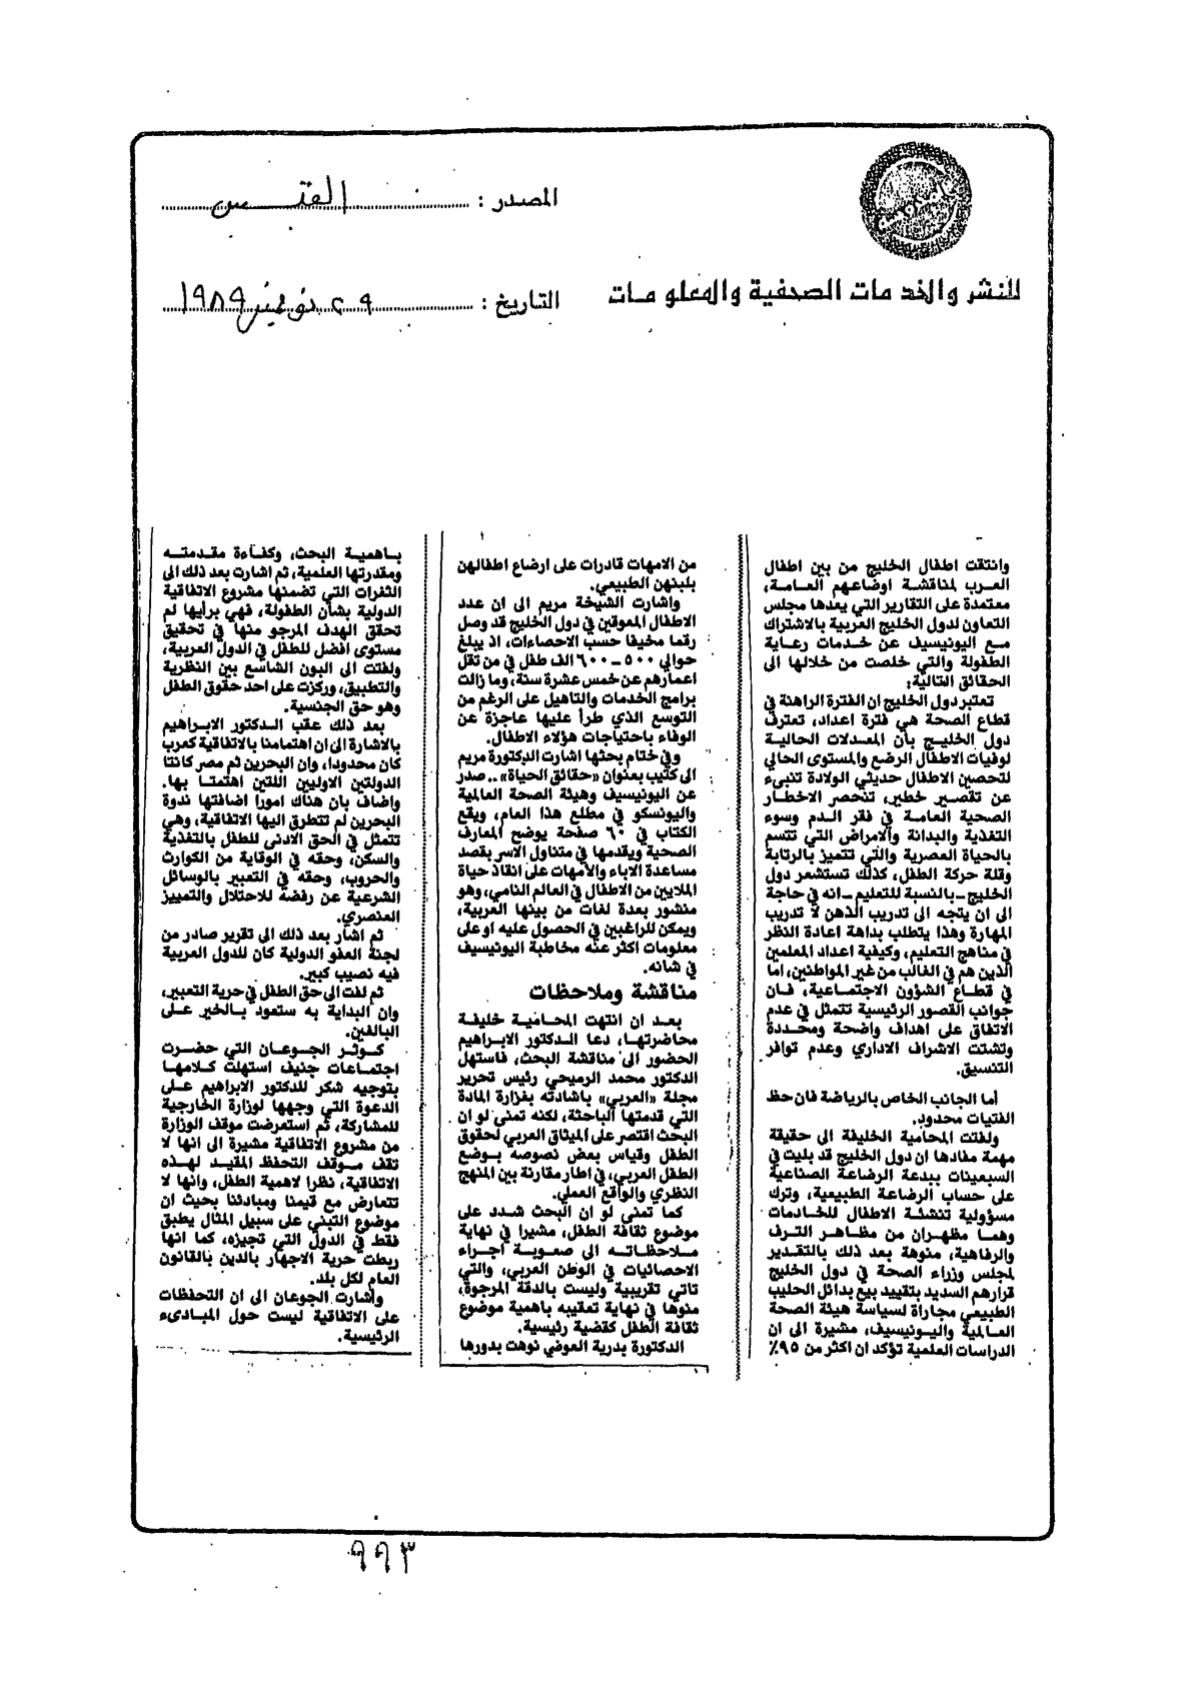 المصدر : القبس
للنشر والخدمات الصحفية والمعلومات
التاريخ : ٢٩ نوفمبر ١٩٨٩
وانتقت اطفال الخليج من بين اطفال
العرب لمناقشة اوضاعهم العامة،
معتمدة على التقارير التي يعدها مجلس
التعاون لدول الخليج العربية بالاشتراك
مع اليونيسيف عن خدمات رعاية
الطفولة والتي خلصت من خلالها الى
الحقائق التالية:
تعتبر دول الخليج ان الفترة الراهنة في
قطاع الصحة هي فترة اعداد، تعترف
دول الخليج بأن المعدلات الحالية
لوفيات الاطفال الرضع والمستوى الحالي
لتحصين الاطفال حديثي الولادة تنبىء
عن تقصير خطير، تنحصر الاخطار
الصحية العامة في فقر الدم وسوء
التغذية والبدانة والأمراض التي تتسم
بالحياة العصرية والتي تتميز بالرتابة
وقلة حركة الطفل، كذلك تستشعر دول
الخليج ـ بالنسبة للتعليم ـ انه في حاجة
الى ان يتجه الى تدريب الذهن لا تدريب
المهارة وهذا يتطلب بداهة اعادة النظر
في مناهج التعليم، وكيفية اعداد المعلمين
الذين هم في الغالب من غير المواطنين، اما
في قطاع الشؤون الاجتماعية، فان
جوانب القصور الرئيسية تتمثل في عدم
الاتفاق على اهداف واضحة ومحددة
وتشتت الاشراف الاداري وعدم توافر
التنسيق.
أما الجانب الخاص بالرياضة فان حظ
الفتيات محدود.
ولفتت المحامية الخليفة الى حقيقة
مهمة مفادها ان دول الخليج قد بليت في
السبعينات ببدعة الرضاعة الصناعية
على حساب الرضاعة الطبيعية، وترك
مسؤولية تنشئة الاطفال للخادمات
وهما مظهران من مظاهر الترف
والرفاهية، منوهة بعد ذلك بالتقدير
لمجلس وزراء الصحة في دول الخليج
قرارهم السديد بتقييد بيع بدائل الحليب
الطبيعي مجاراة لسياسة هيئة الصحة
العالمية واليونيسيف، مشيرة الى ان
الدراسات العلمية تؤكد ان اكثر من ٩٥٪
من الامهات قادرات على ارضاع اطفالهن
بلبنهن الطبيعي.
واشارت الشيخة مريم الى ان عدد
الاطفال المعوقين في دول الخليج قد وصل
رقما مخيفا حسب الاحصاءات، اذ يبلغ
حوالي ٥٠٠ ـ ٦٠٠ الف طفل في من تقل
اعمارهم عن خمس عشرة سنة، وما زالت
برامج الخدمات والتاهيل على الرغم من
التوسع الذي طرأ عليها عاجزة عن
الوفاء باحتياجات هؤلاء الاطفال.
وفي ختام بحثها اشارت الدكتورة مريم
الى كتيب بعنوان «حقائق الحياة» .. صدر
عن اليونيسيف وهيئة الصحة العالمية
واليونسكو في مطلع هذا العام، ويقع
الكتاب في ٦٠ صفحة يوضح المعارف
الصحية ويقدمها في متناول الاسر بقصد
مساعدة الاباء والأمهات على انقاذ حياة
الملايين من الاطفال في العالم النامي، وهو
منشور بعدة لغات من بينها العربية،
ويمكن للراغبين في الحصول عليه او على
معلومات اكثر عنه مخاطبة اليونيسيف
في شانه.
مناقشة وملاحظات
بعد ان انتهت المحامية خليفة
محاضرتها، دعا الدكتور الابراهيم
الحضور الى مناقشة البحث، فاستهل
الدكتور محمد الرميحي رئيس تحرير
مجلة «العربي» باشادته بغزارة المادة
التي قدمتها الباحثة، لكنه تمنى لو ان
البحث اقتصر على الميثاق العربي لحقوق
الطفل وقياس بعض نصوصه بوضع
الطفل العربي، في اطار مقارنة بين المنهج
النظري والواقع العملي.
كما تمنى لو ان البحث شدد على
موضوع ثقافة الطفل، مشيرا في نهاية
ملاحظاته الى صعوبة اجراء
الاحصائيات في الوطن العربي، والتي
تاتي تقريبية وليست بالدقة المرجوة،
منوها في نهاية تعقيبه باهمية موضوع
ثقافة الطفل كقضية رئيسية.
الدكتورة بدرية العوضي نوهت بدورها
باهمية البحث، وكفاءة مقدمته
ومقدرتها العلمية، ثم اشارت بعد ذلك الى
الثغرات التي تضمنها مشروع الاتفاقية
الدولية بشأن الطفولة، فهي برأيها لم
تحقق الهدف المرجو منها في تحقيق
مستوى افضل للطفل في الدول العربية،
ولفتت الى البون الشاسع بين النظرية
والتطبيق، وركزت على احد حقوق الطفل
وهو حق الجنسية.
بعد ذلك عقب الدكتور الابراهيم
بالاشارة الى ان اهتمامنا بالاتفاقية كعرب
كان محدودا، وان البحرين ثم مصر كانتا
الدولتين الاوليين اللتين اهتمتا بها.
واضاف بان هناك امورا اضافتها ندوة
البحرين لم تتطرق اليها الاتفاقية، وهي
تتمثل في الحق الادنى للطفل بالتغذية
والسكن، وحقه في الوقاية من الكوارث
والحروب، وحقه في التعبير بالوسائل
الشرعية عن رفضه للاحتلال والتمييز
العنصري.
ثم اشار بعد ذلك الى تقرير صادر من
لجنة العفو الدولية كان للدول العربية
فيه نصيب كبير.
ثم لفت الى حق الطفل في حرية التعبير،
وان البداية به ستعود بالخير على
البالغين.
كوثر الجوعان التي حضرت
اجتماعات جنيف استهلت كلامها
بتوجيه شكر للدكتور الابراهيم على
الدعوة التي وجهها لوزارة الخارجية
للمشاركة، ثم استعرضت موقف الوزارة
من مشروع الاتفاقية مشيرة الى انها لا
تقف موقف التحفظ المقيد لهذه
الاتفاقية، نظرا لاهمية الطفل، وانها لا
تتعارض مع قيمنا ومبادئنا بحيث ان
موضوع التبني على سبيل المثال يطبق
فقط في الدول التي تجيزه، كما انها
ربطت حرية الاجهار بالدين بالقانون
العام لكل بلد.
وأشارت الجوعان الى ان التحفظات
على الاتفاقية ليست حول المبادىء
الرئيسية.
٩٩٣